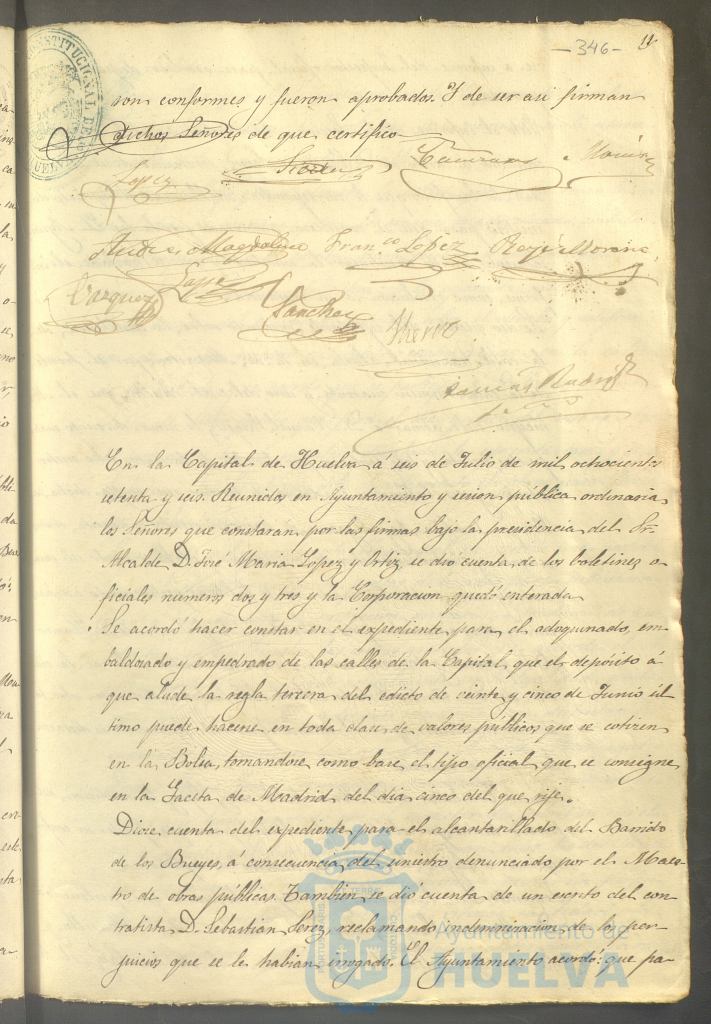 -346- 11
son conformes y fueron aprobados. Y de ser asi firman
dichos Señores de que certifico
Lopez
Magdalena Franco Lopez
Lopez
Vazquez
Sanchez
En la Capital de Huelva á seis de Julio de mil ochocientos
setenta y seis. Reunidos en Ayuntamiento y sesion pública ordinaria
los Señores que constaran por las firmas bajo la presidencia del Sr.
Alcalde D. José Maria Lopez y Ortiz, se dió cuenta de los boletines o-
ficiales numeros dos y tres y la Corporacion quedó enterada
Se acordó hacer constar en el expediente para el adoquinado, em
baldosado y empedrado de las calles de la Capital, que el depósito á
que alude la regla tercera del edicto de veinte y cinco de Junio úl
timo puede hacerse en toda clase de valores públicos que se coticen
en la Bolsa, tomandose como base el tipo oficial que se consigne
en la Gaceta de Madrid del dia cinco del que rije.
Diose cuenta del expediente para el alcantarillado del Barrido
de los Bueyes, á consecuencia del siniestro denunciado por el Maes-
tro de obras publicas. Tambien se dió cuenta de un escrito del con
tratista D. Sebastian Perez, reclamando indemnizacion de los per-
juicios que se le habian irrogado. El Ayuntamiento acordó: que pa-
Ayuntamiento de
HUELVA